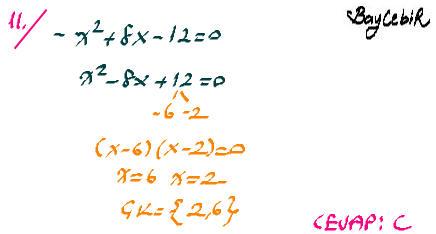 11. BayCebiR
-x²+8x-12=0
x²-8x+12=0
-6 -2
(x-6)(x-2)=0
x=6 x=2
ÇK={2,6}
CEVAP: C